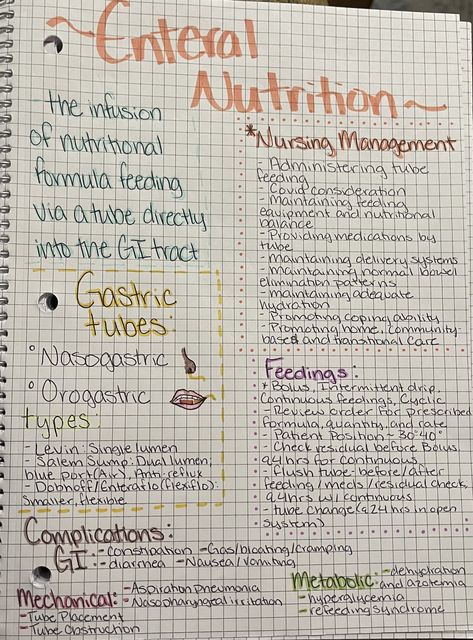 ~Enteral
Nutrition~
the infusion
of nutritional
formula feeding
via a tube directly
into the GI tract
*Nursing Management
- Administering tube
feeding
- Covid consideration
- maintaining feeding
equipment and nutritional
balance
- Providing medications by
tube
- maintaining delivery systems
- maintaining normal bowel
elimination patterns
- maintaining adequate
hydration
- Promoting coping ability
- Promoting home, community-
based and transitional care
Gastric
tubes:
° Nasogastric
° Orogastric
types:
- Levin: Single lumen
- Salem Sump: Dual lumen,
blue port (Air), Anti-reflux
- Dobhoff/Enteraflo (flexiflo):
Smaller, flexible
Feedings:
* Bolus, Intermittent drip,
Continuous feedings, Cyclic
- Review order for prescribed
formula, quantity, and rate
- Patient Position ~ 30°-40°
- Check residual before Bolus,
q4hrs for continuous
- flush tube: before/after
feeding/meds/residual check,
q4hrs w/ continuous
- tube change (q24hrs in open
system)
Complications:
GI: - constipation - Gas/bloating/cramping
- diarrhea - Nausea/Vomiting
Mechanical: - Aspiration pneumonia
- Nasopharyngal irritation
- Tube Placement
- Tube Obstruction
Metabolic: - dehydration
and azotemia
- hyperglycemia
- refeeding syndrome